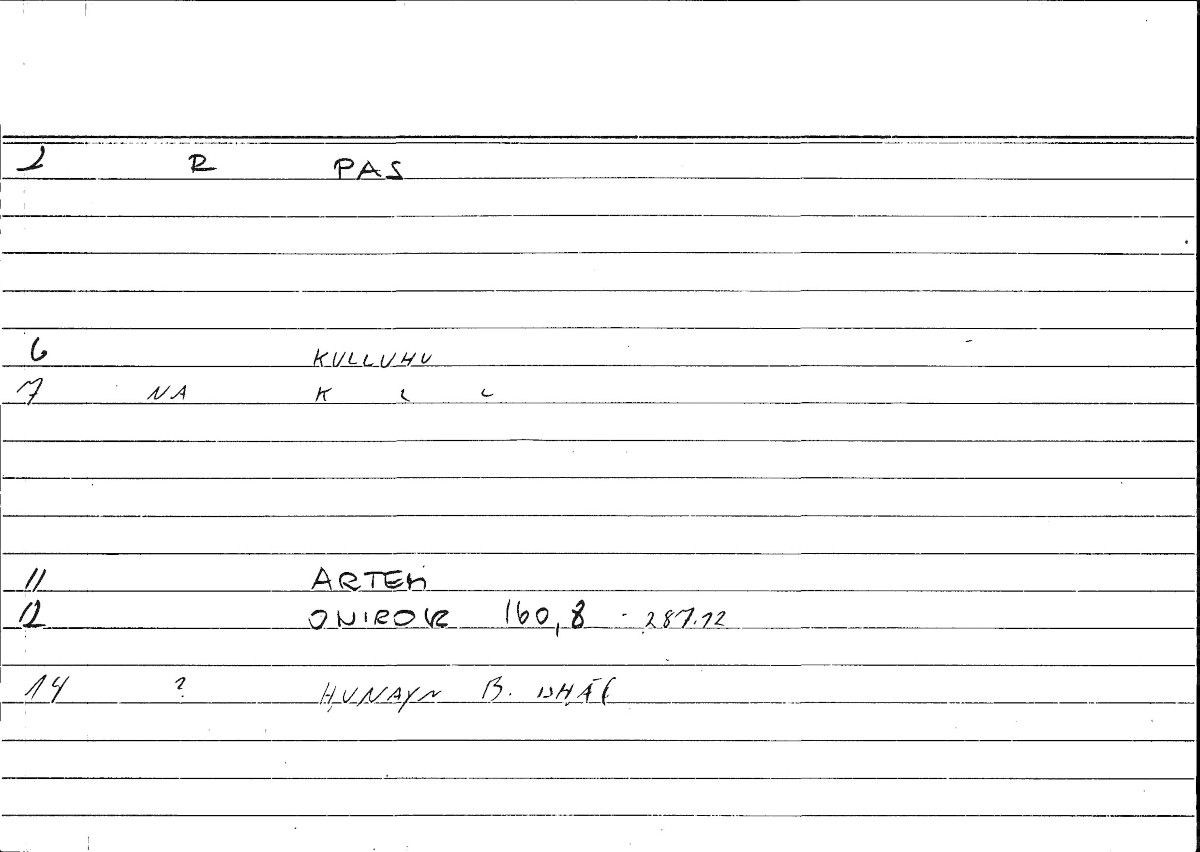 2 R PAS
6 KULLUHU
7 NA K L L
11 ARTEM
12 ONIROK 160,8 - 287.12
14 ? ḤUNAYN B. ISḤĀ